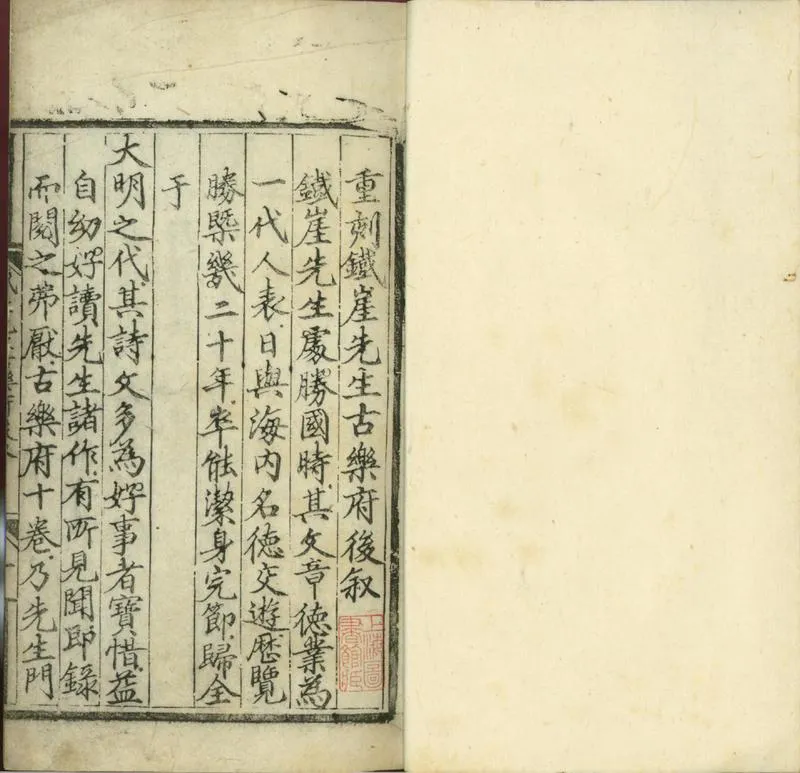 重刻鐵崖先生古樂府後叙
鐵崖先生處勝國時其文章徳業為
一代人表日與海内名徳交遊歴覽
勝槩幾二十年卒能潔身完節歸全
于
大明之代其詩文多為好事者寶惜益
自幼好讀先生諸作有所見聞即錄
而閱之弗厭古樂府十卷乃先生門
上海圖
書館藏